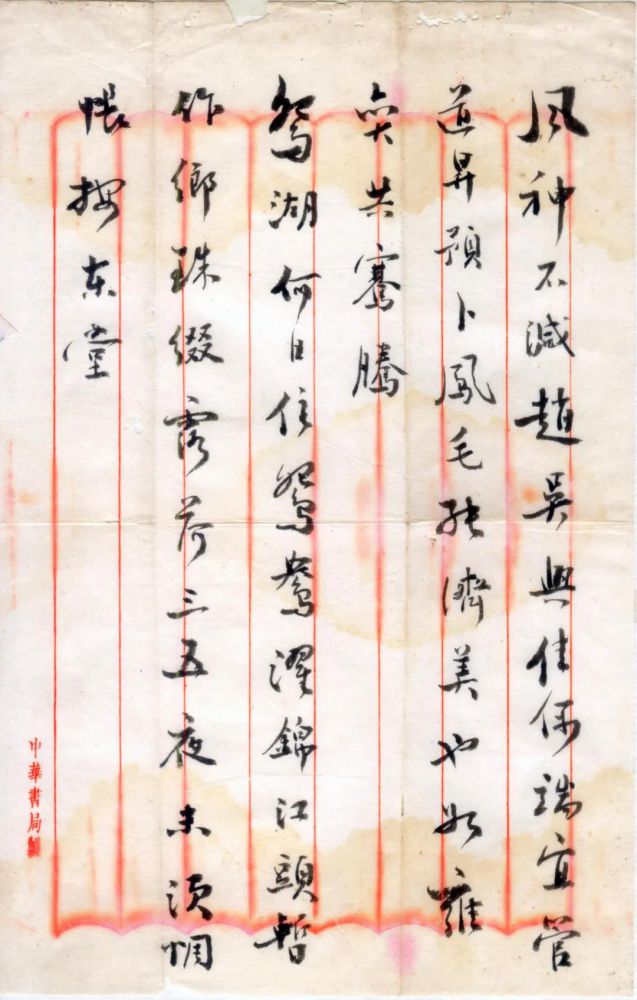 風神不減趙吳興佳偶端宜管
道昇預卜鳳毛能濟美也如雍
奕共騫騰
鴛湖何日住鴛鴦濯錦江頭暫
作鄉珠綴露荷三五夜未須惆
悵按東堂
中華書局製